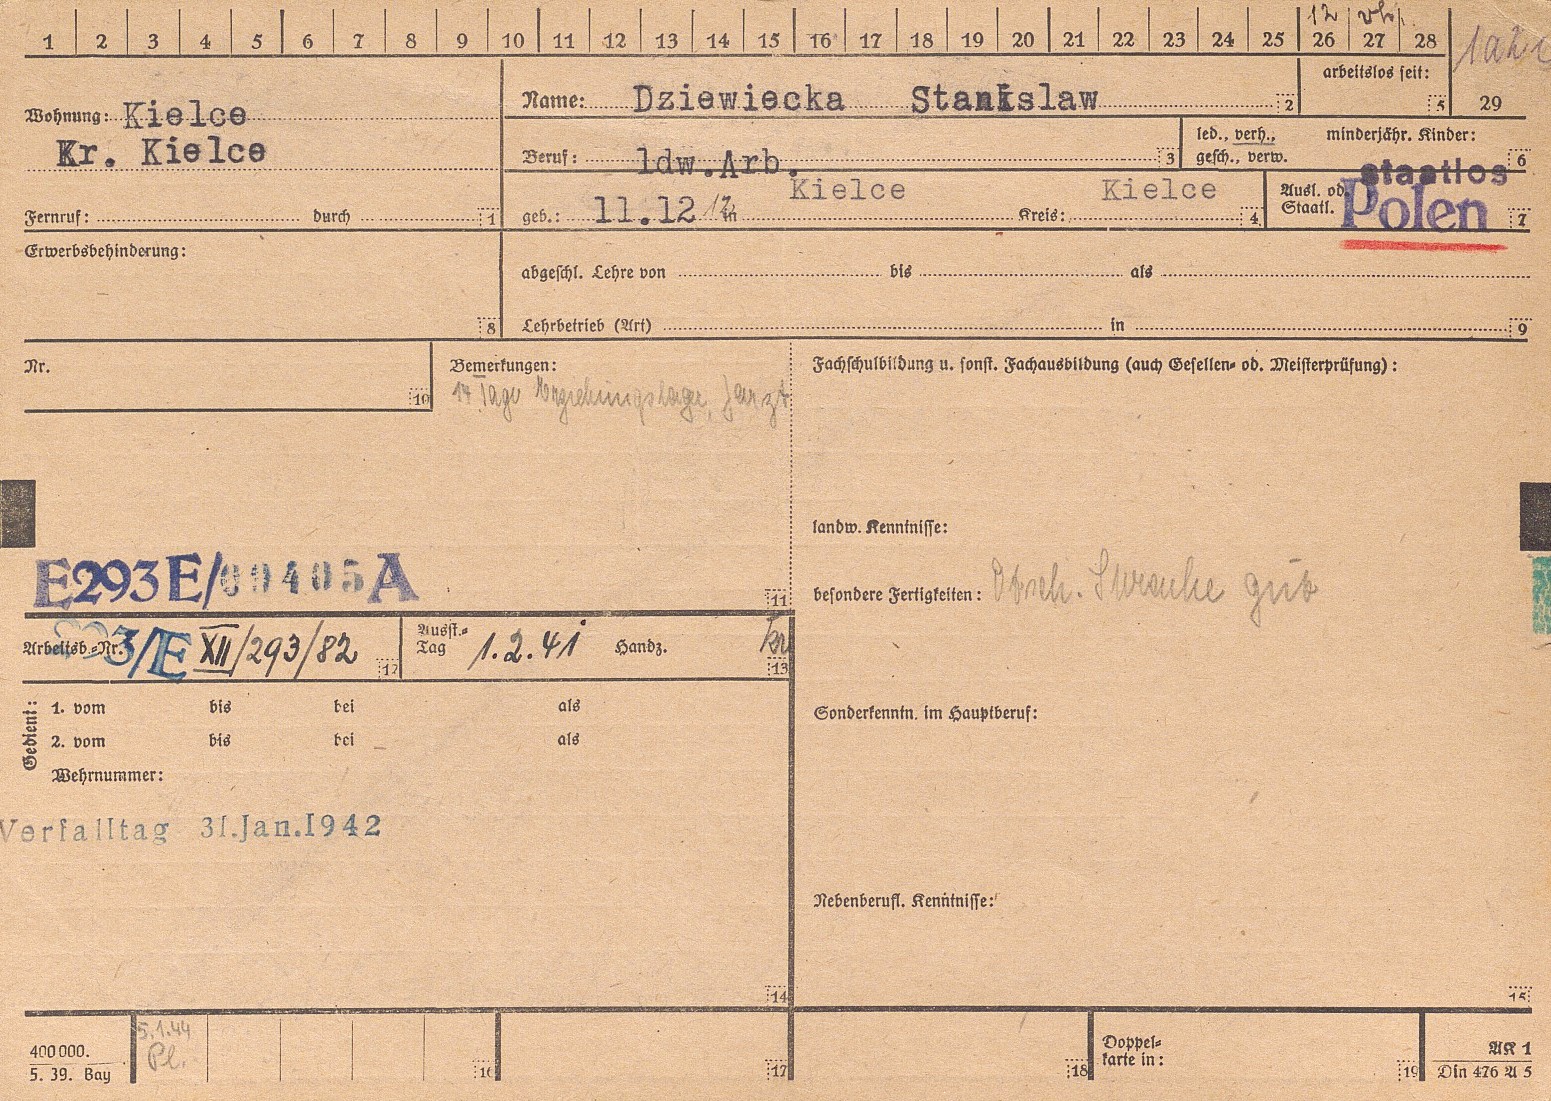 12 vhr.
1 2 3 4 5 6 7 8 9 10 11 12 13 14 15 16 17 18 19 20 21 22 23 24 25 26 27 28
Wohnung: Kielce
Kr. Kielce
Fernruf: durch 1
Name: Dziewiecka Stanislaw 2
arbeitslos seit: 5
29
Beruf: ldw.Arb. 3
led., verh., gesch., verw.
minderjähr. Kinder: 6
geb.: 11.12 12 in Kielce Kreis: Kielce 4
Ausl. od. Staatl. staatlos Polen 7
Erwerbsbehinderung: 8
abgeschl. Lehre von bis als
Lehrbetrieb (Art) in 9
Nr. 10
Bemerkungen:
14 Tage Erziehungslager,
Fachschulbildung u. sonst. Fachausbildung (auch Gesellen- od. Meisterprüfung):
landw. Kenntnisse:
besondere Fertigkeiten: Dtsch. Sprache gut
E293E/00405A
11
Arbeitsb.-Nr. 3/E XII/293/82 12
Ausst.-Tag 1.2.41 Handz. 13
Gedient:
1. vom bis bei als
2. vom bis bei als
Wehrnummer:
Sonderkenntn. im Hauptberuf:
Verfalltag 31.Jan.1942
Nebenberufl. Kenntnisse:
14
15
400000.
5. 39. Bay
5.1.44
Pl.
16
17
18
Doppel-
karte in:
19
AK 1
Din 476 A 5